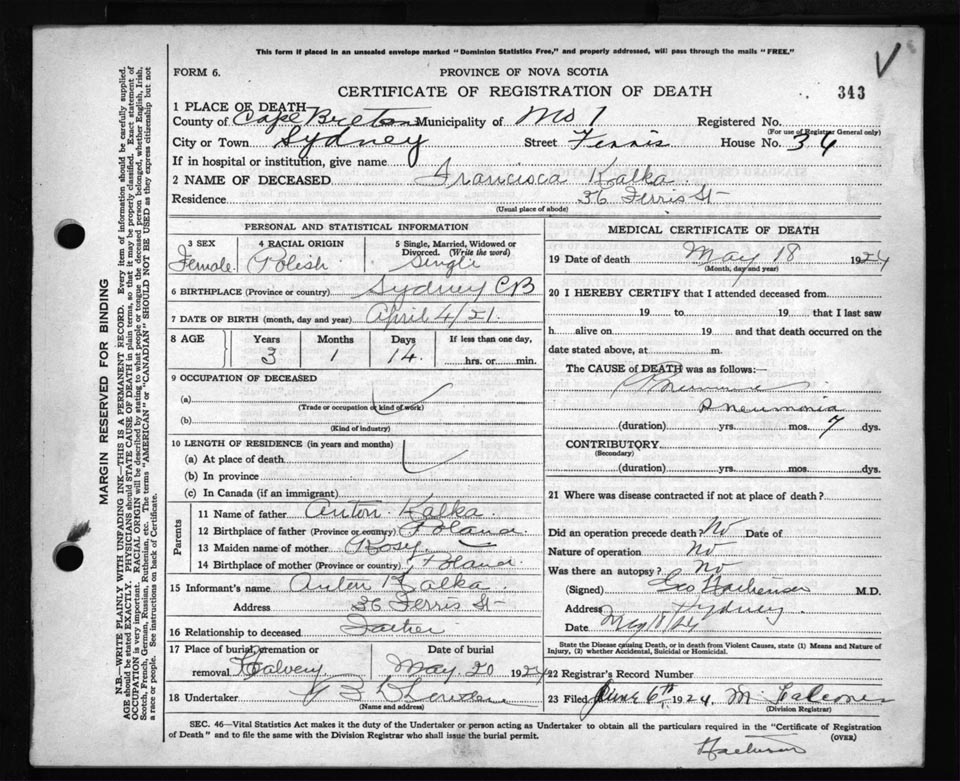 This form if placed in an unsealed envelope marked "Dominion Statistics Free," and properly addressed, will pass through the mails "FREE."
V
FORM 6.
PROVINCE OF NOVA SCOTIA
CERTIFICATE OF REGISTRATION OF DEATH
343
1 PLACE OF DEATH
County of Cape Breton Municipality of No 1 Registered No.
(For use of Registrar General only)
City or Town Sydney Street Ferris House No. 36
If in hospital or institution, give name
2 NAME OF DECEASED Francisca Kalka
Residence 36 Ferris St
(Usual place of abode)
PERSONAL AND STATISTICAL INFORMATION
3 SEX 4 RACIAL ORIGIN 5 Single, Married, Widowed or Divorced. (Write the word)
Female. Polish Single
6 BIRTHPLACE (Province or country) Sydney CB
7 DATE OF BIRTH (month, day and year) April 4/21.
8 AGE Years Months Days If less than one day,
3 1 14 hrs. or min.
9 OCCUPATION OF DECEASED
(a)
(Trade or occupation or kind of work)
(b)
(Kind of industry)
10 LENGTH OF RESIDENCE (in years and months)
(a) At place of death
(b) In province
(c) In Canada (if an immigrant)
Parents
11 Name of father Anton Kalka
12 Birthplace of father (Province or country) Poland
13 Maiden name of mother Rosy
14 Birthplace of mother (Province or country) Poland
15 Informant's name Anton Kalka
Address 36 Ferris St
16 Relationship to deceased Father
17 Place of burial, cremation or removal Calvery Date of burial May 20 1924
18 Undertaker
(Name and address)
MEDICAL CERTIFICATE OF DEATH
19 DATE OF DEATH May 18 1924
(Month, day and year)
20 I HEREBY CERTIFY that I attended deceased from
19 to 19 that I last saw
h alive on 19 and that death occurred on the
date stated above, at m.
The CAUSE of DEATH was as follows:—
Pneumonia
(duration) yrs. mos. 7 dys.
CONTRIBUTORY
(Secondary)
(duration) yrs. mos. dys.
21 Where was disease contracted if not at place of death?
Did an operation precede death? No Date of
Nature of operation No
Was there an autopsy? No
(Signed) Geo M.D.
Address Sydney
Date May 18/24
State the Disease causing Death, or in death from Violent Causes, state (1) Means and Nature of Injury, (2) whether Accidental, Suicidal or Homicidal.
22 Registrar's Record Number
23 Filed June 6th, 1924 M
(Division Registrar)
SEC. 46—Vital Statistics Act makes it the duty of the Undertaker or person acting as Undertaker to obtain all the particulars required in the "Certificate of Registration
of Death" and to file the same with the Division Registrar who shall issue the burial permit.
(OVER)
MARGIN RESERVED FOR BINDING
N.B.—WRITE PLAINLY WITH UNFADING INK—THIS IS A PERMANENT RECORD. Every item of information should be carefully supplied.
AGE should be stated EXACTLY. PHYSICIANS should STATE CAUSE OF DEATH in plain terms, so that it may be properly classified. Exact statement of
OCCUPATION is very important. RACIAL ORIGIN will be described by stating to what people or tongue the deceased person belonged, whether English, Irish,
Scotch, French, German, Russian, Ruthenian, etc. The terms "AMERICAN" or "CANADIAN" SHOULD NOT BE USED as they express citizenship but not
a race or people. See instructions on back of Certificate.